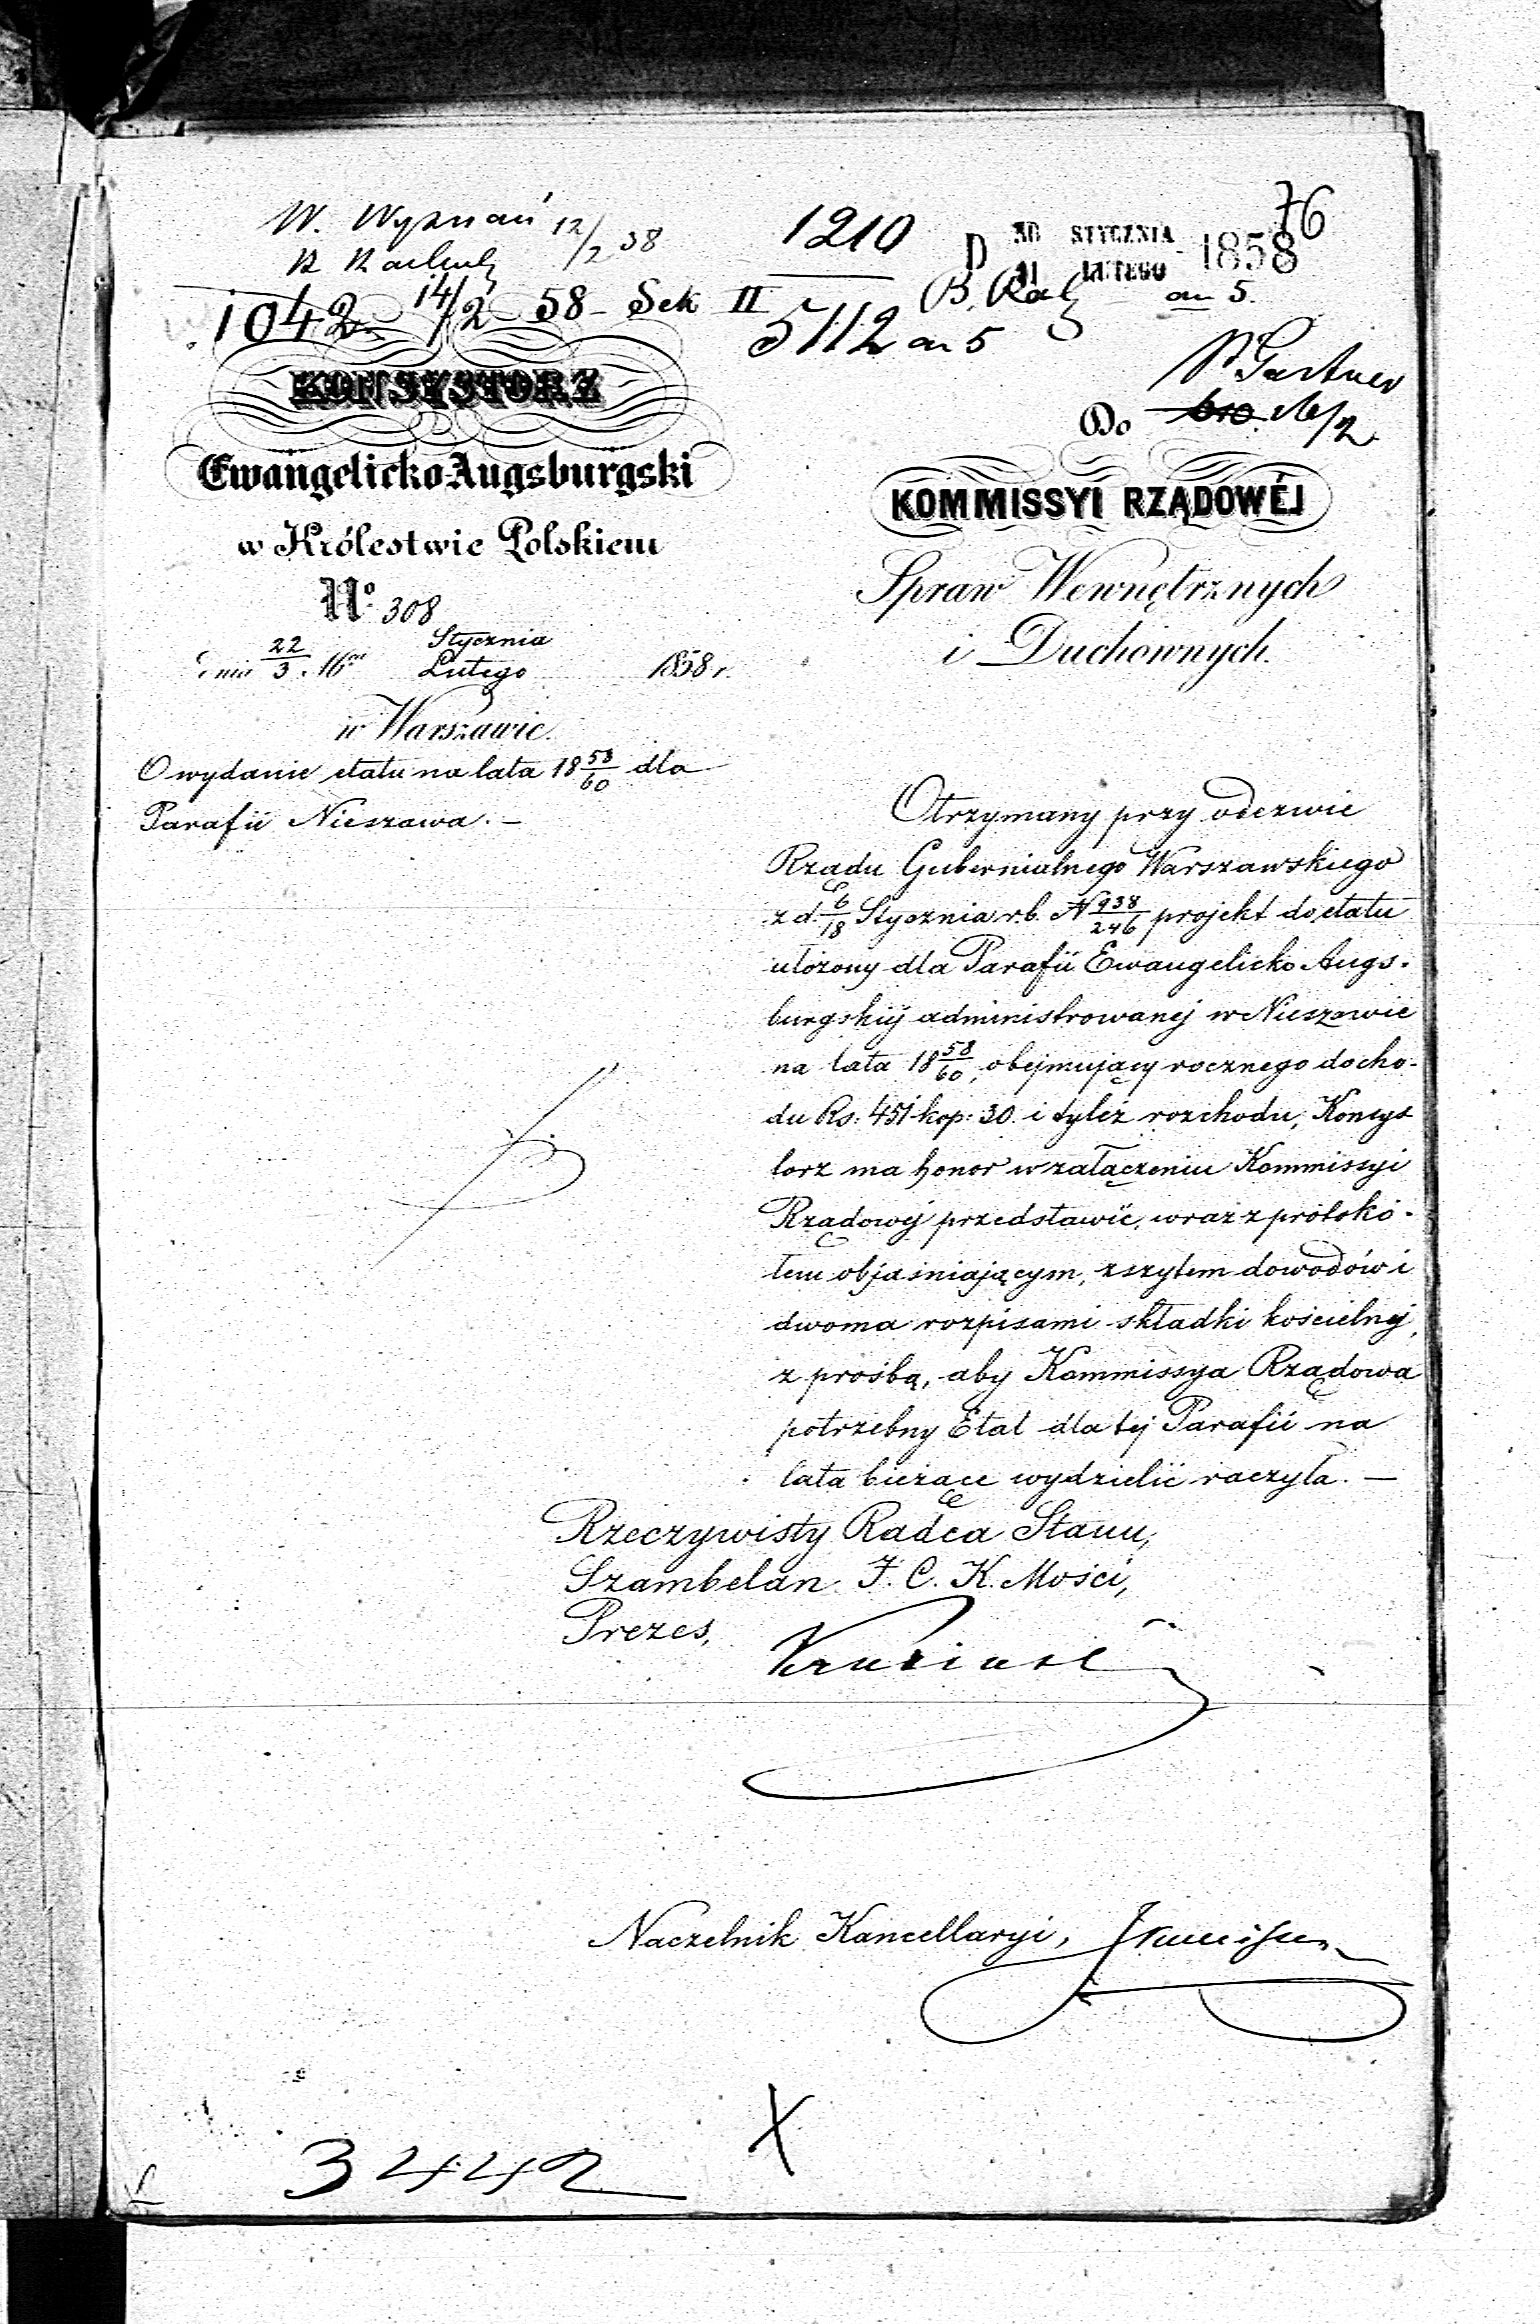 76
W. Wyznań 12/2 58
1210
D 30 STYCZNIA 11 LUTEGO 1858
1042 14/2 58 - Sek II
B. Rac an 5.
5112 an 5
KONSYSTORZ
Ewangelicko Augsburgski
w Królestwie Polskiem
Nº 308
dnia 22/3 Stycznia Lutego 1858 r.
w Warszawie.
O wydanie etatu na lata 18 58/60 dla
Parafii Nieszawa. –
Do
KOMMISSYI RZĄDOWÉJ
Spraw Wewnętrznych
i Duchownych.
Otrzymany przy odezwie
Rządu Gubernialnego Warszawskiego
z d. 6/18 Stycznia r.b. N 938/246 projekt do etatu
ułożony dla Parafii Ewangelicko Augs-
burgskiej administrowanej w Nieszawie
na lata 18 58/60, obejmujący rocznego docho-
du Rs: 451 kop: 30. i tyleż rozchodu, Konsys
torz ma honor w załączeniu Kommissyi
Rządowej przedstawić, wraz z protokó-
łem objaśniającym, zszytem dowodów i
dwoma rozpisami składki kościelnej,
z prośbą, aby Kommissya Rządowa
potrzebny Etat dla tej Parafii na
lata bieżące wydzielić raczyła. —
Rzeczywisty Radca Stanu,
Szambelan J. C. K. Mości,
Prezes,
Naczelnik Kancellaryi,
X
3442